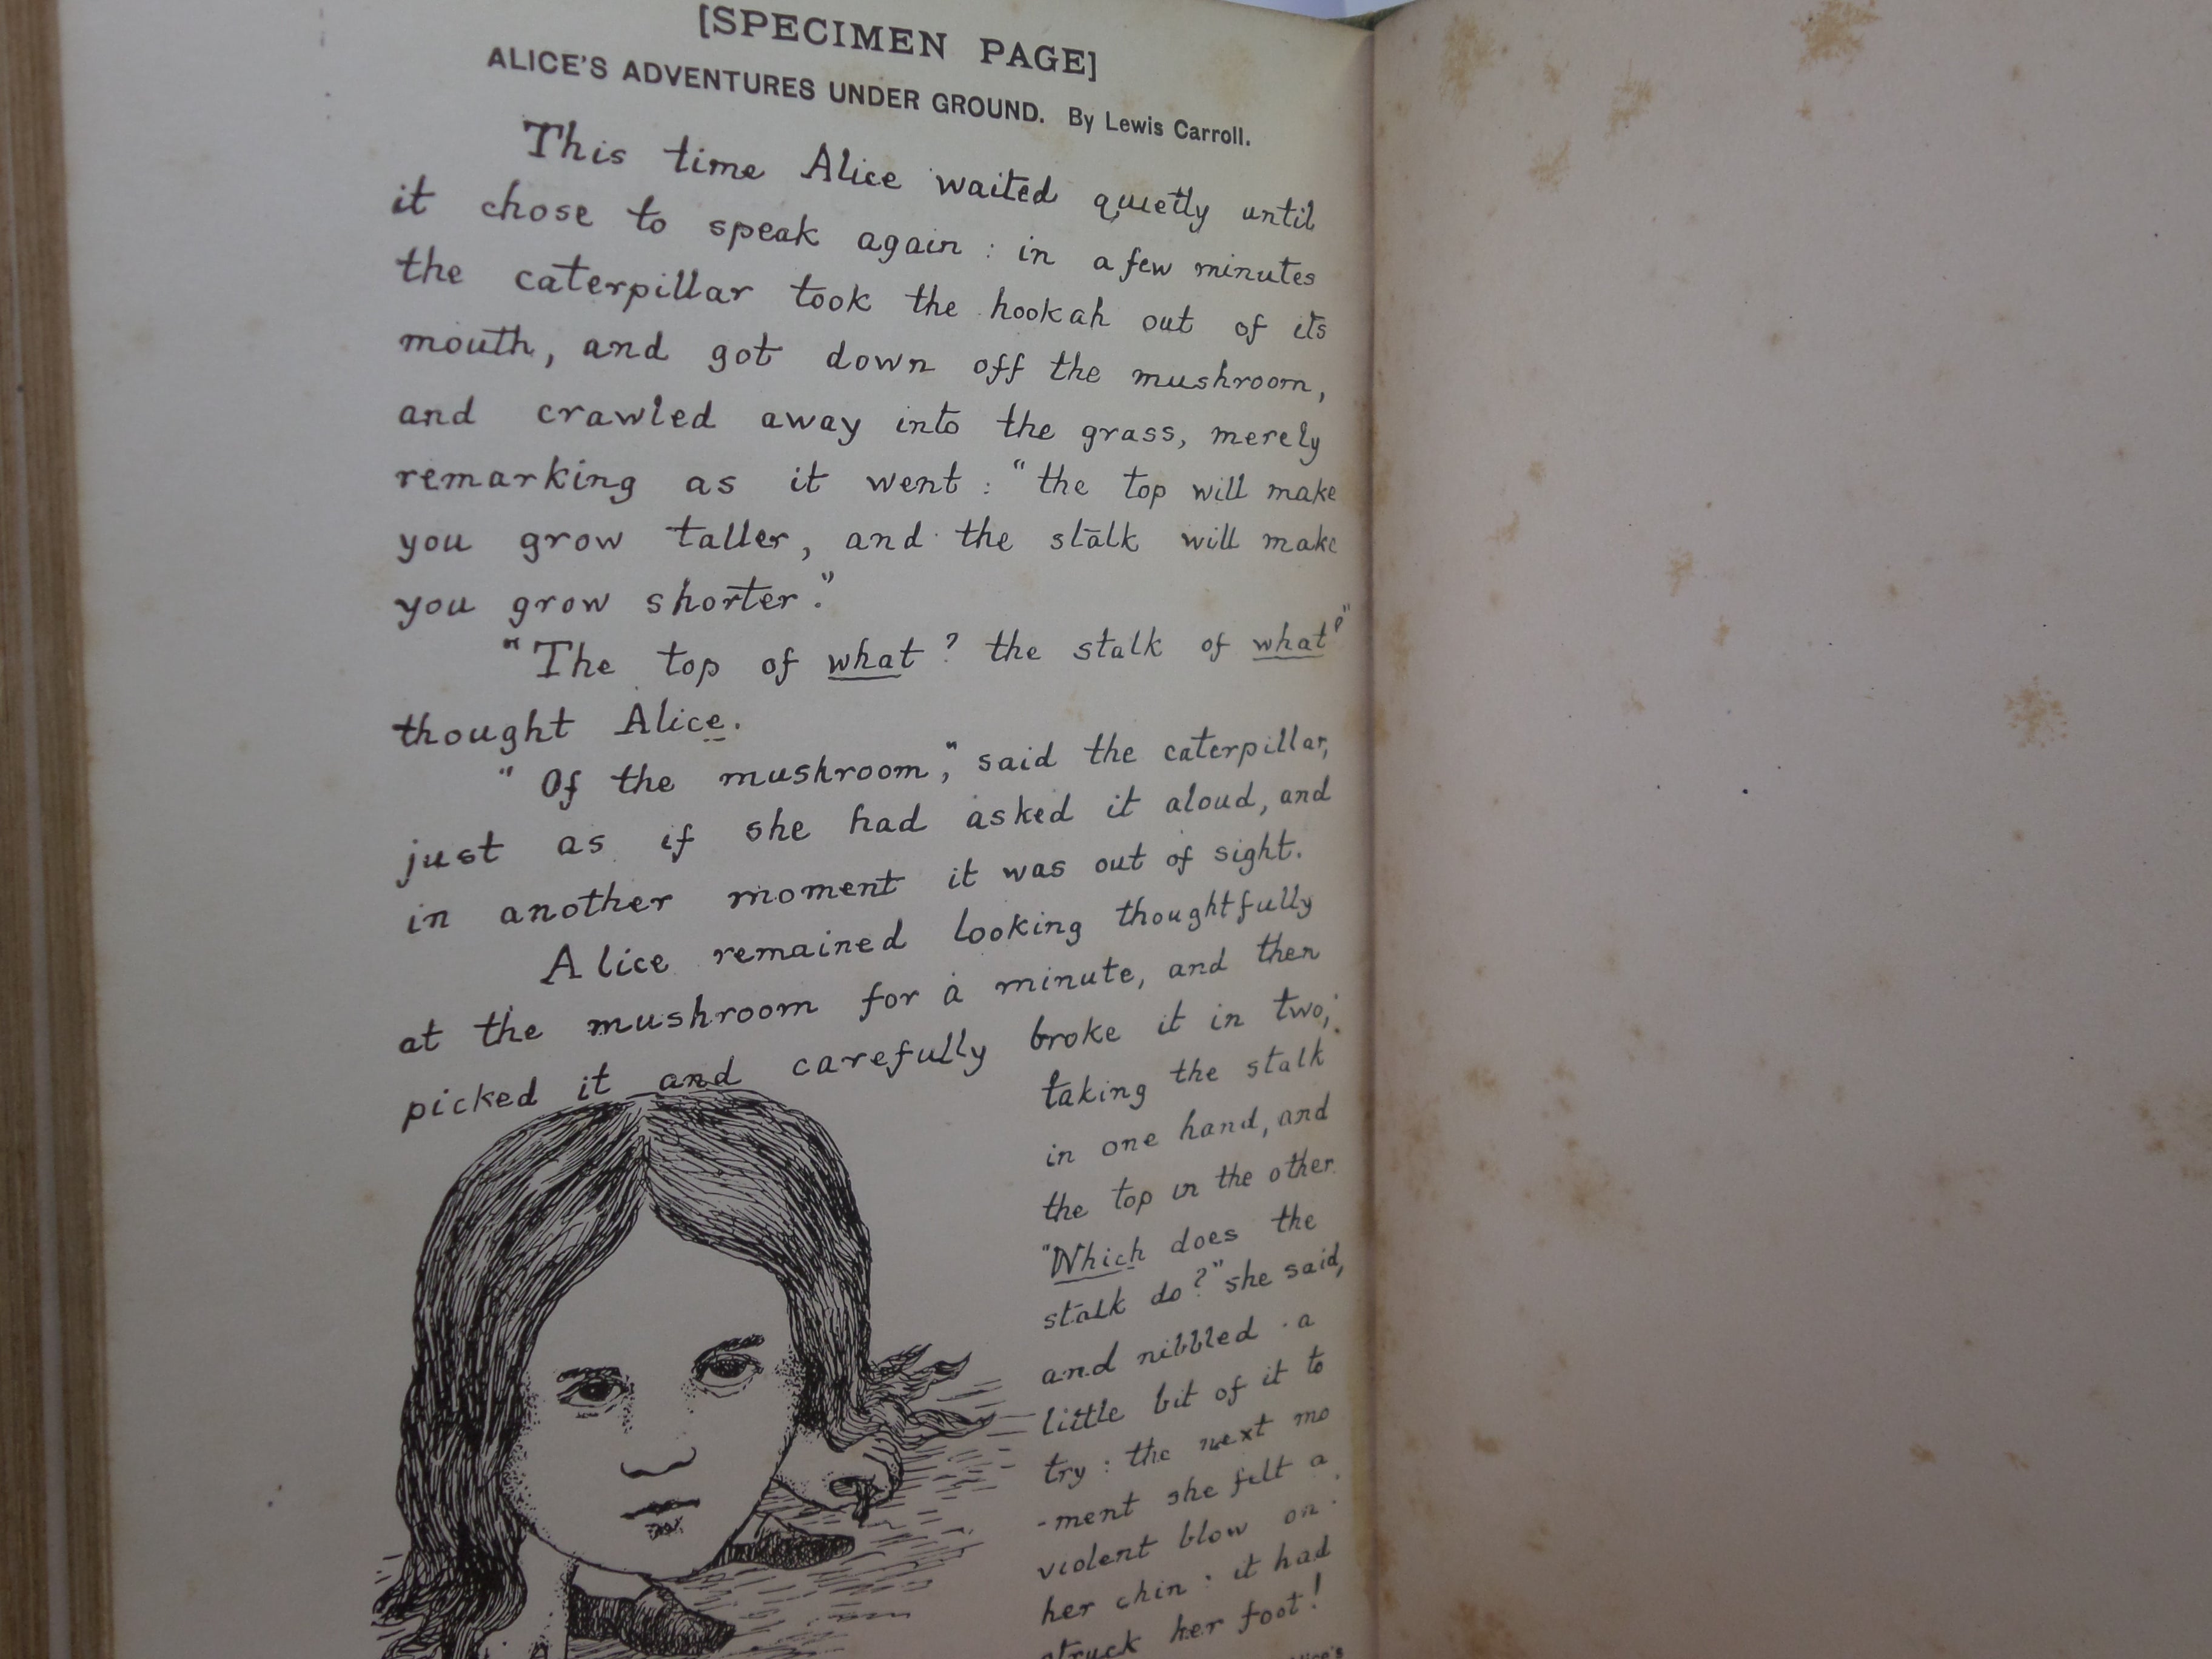 [SPECIMEN PAGE]
ALICE'S ADVENTURES UNDER GROUND. By Lewis Carroll.
This time Alice waited quietly until
it chose to speak again : in a few minutes
the caterpillar took the hookah out of its
mouth, and got down off the mushroom,
and crawled away into the grass, merely
remarking as it went : "the top will make
you grow taller, and the stalk will make
you grow shorter."
"The top of what? the stalk of what?"
thought Alice.
"Of the mushroom," said the caterpillar,
just as if she had asked it aloud, and
in another moment it was out of sight.
Alice remained looking thoughtfully
at the mushroom for a minute, and then
picked it and carefully broke it in two,
taking the stalk
in one hand, and
the top in the other.
"Which does the
stalk do?" she said,
and nibbled a
little bit of it to
try : the next mo
-ment she felt a
violent blow on
her chin : it had
struck her foot!